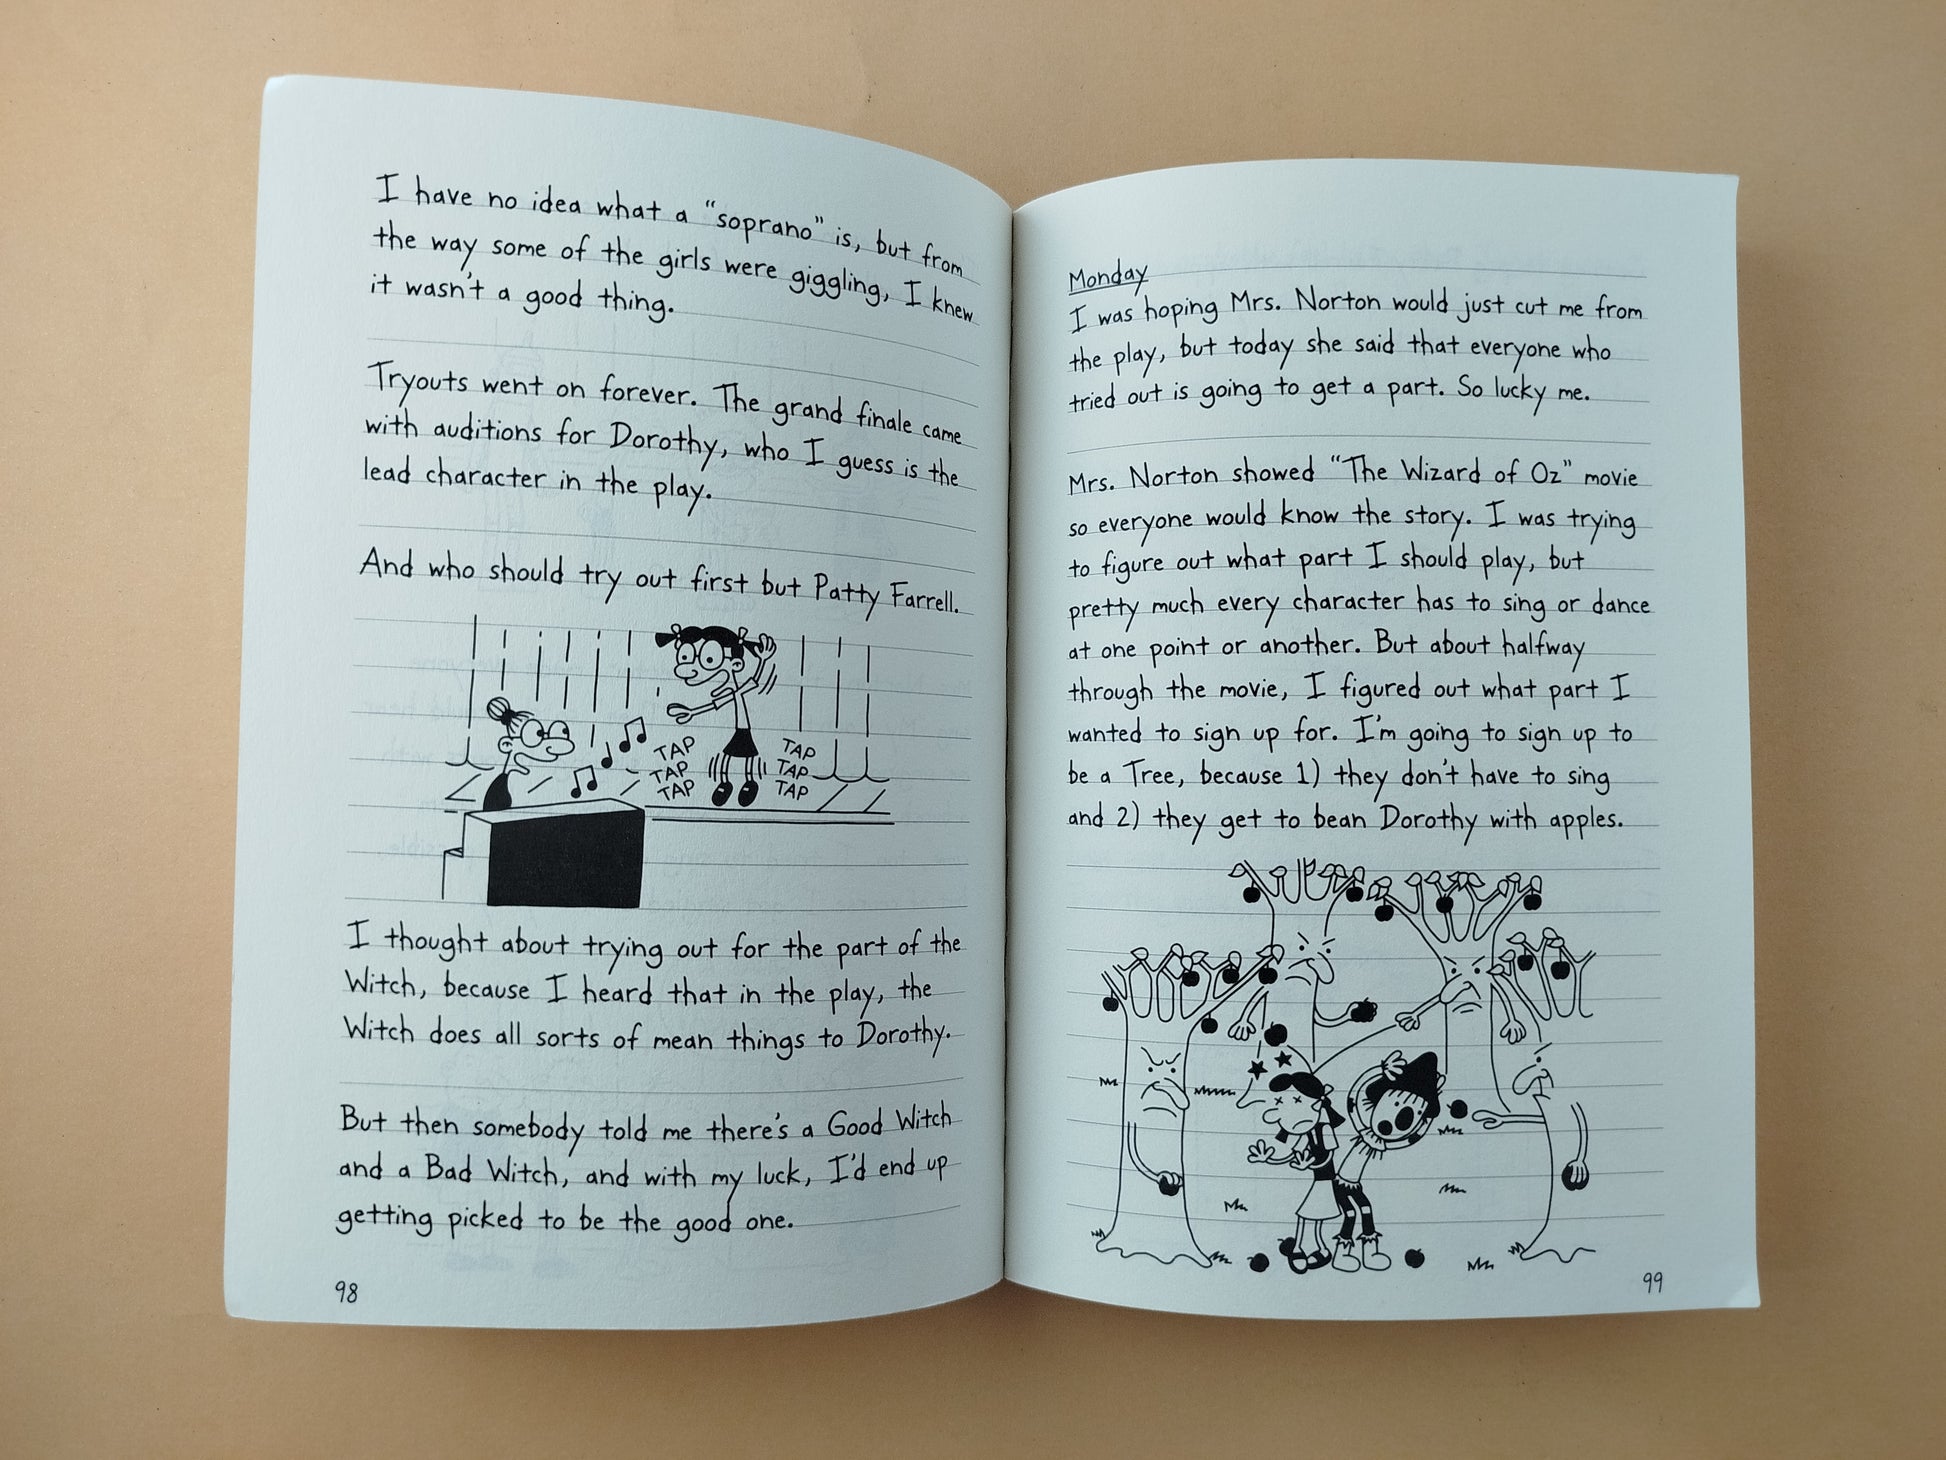 I have no idea what a “soprano” is, but from
the way some of the girls were giggling, I knew
it wasn't a good thing.
Tryouts went on forever. The grand finale came
with auditions for Dorothy, who I guess is the
lead character in the play.
And who should try out first but Patty Farrell.
TAP
TAP
TAP
TAP
TAP
TAP
I thought about trying out for the part of the
Witch, because I heard that in the play, the
Witch does all sorts of mean things to Dorothy.
But then somebody told me there's a Good Witch
and a Bad Witch, and with my luck, I'd end up
getting picked to be the good one.
98
Monday
I was hoping Mrs. Norton would just cut me from
the play, but today she said that everyone who
tried out is going to get a part. So lucky me.
Mrs. Norton showed “The Wizard of Oz” movie
so everyone would know the story. I was trying
to figure out what part I should play, but
pretty much every character has to sing or dance
at one point or another. But about halfway
through the movie, I figured out what part I
wanted to sign up for. I'm going to sign up to
be a Tree, because 1) they don't have to sing
and 2) they get to bean Dorothy with apples.
99